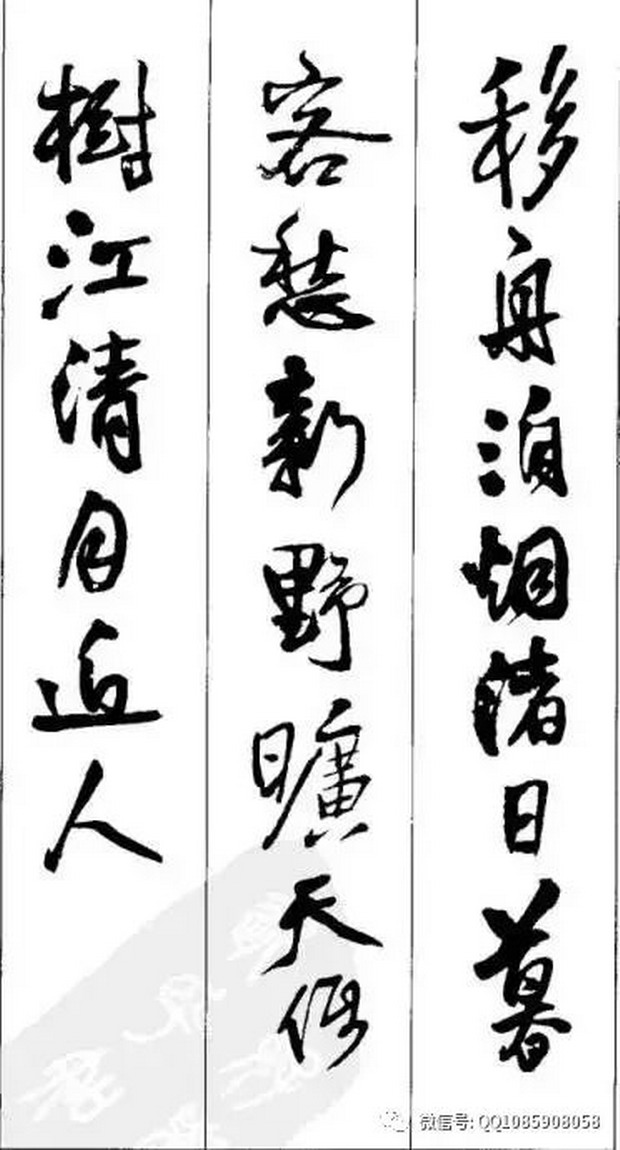 移舟泊烟渚日暮
客愁新野曠天低
樹江清月近人
微信号: QQ1085908058